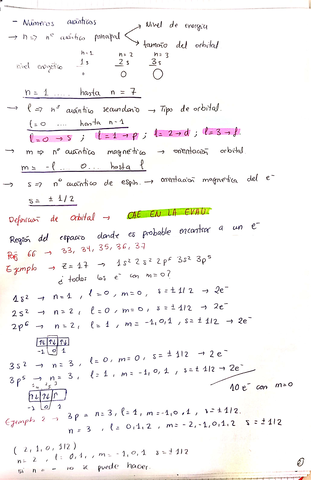 - Números cuánticos
→ n => nº cuántico principal → Nivel de energía
→ tamaño del orbital
n=1 n=2 n=3
nivel energético 1s 2s 3s
n = 1 ..... hasta n = 7
→ l => nº cuántico secundario → Tipo de orbital.
l=0 ... hasta n-1
l=0 → s ; l=1 → p ; l=2 → d ; l=3 → f
→ m => nº cuántico magnético → orientación orbital
m = -l .. 0 ... hasta l
→ s => nº cuántico de espín. → orientación magnética del e⁻
s = ± 1/2
Definición de orbital → CAE EN LA EVAU.
Región del espacio donde es probable encontrar a un e⁻
Pág 66 → 33, 34, 35, 36, 37
Ejemplo → Z=17 → 1s² 2s² 2p⁶ 3s² 3p⁵
¿ todos los e⁻ con m=0?
1s² → n=1, l=0, m=0, s=±1/2 → 2e⁻
2s² → n=2, l=0, m=0, s=±1/2 → 2e⁻
2p⁶ → n=2, l=1, m=-1,0,1, s=±1/2 → 2e⁻
-1 0 1
3s² → n=3, l=0, m=0, s=±1/2 → 2e⁻
3p⁵ → n=3, l=1, m=-1,0,1, s=±1/2 → 2e⁻
-1 0 1
10 e⁻ con m=0
Ejemplo 2 → 3p → n=3, l=1, m=-1,0,1, s=±1/2.
n=3, l=0,1,2, m=-2,-1,0,1,2 s=±1/2
(2,1,0,1/2)
n=2, l=0,1, m=-1,0,1 s=±1/2
si n = no se puede hacer.